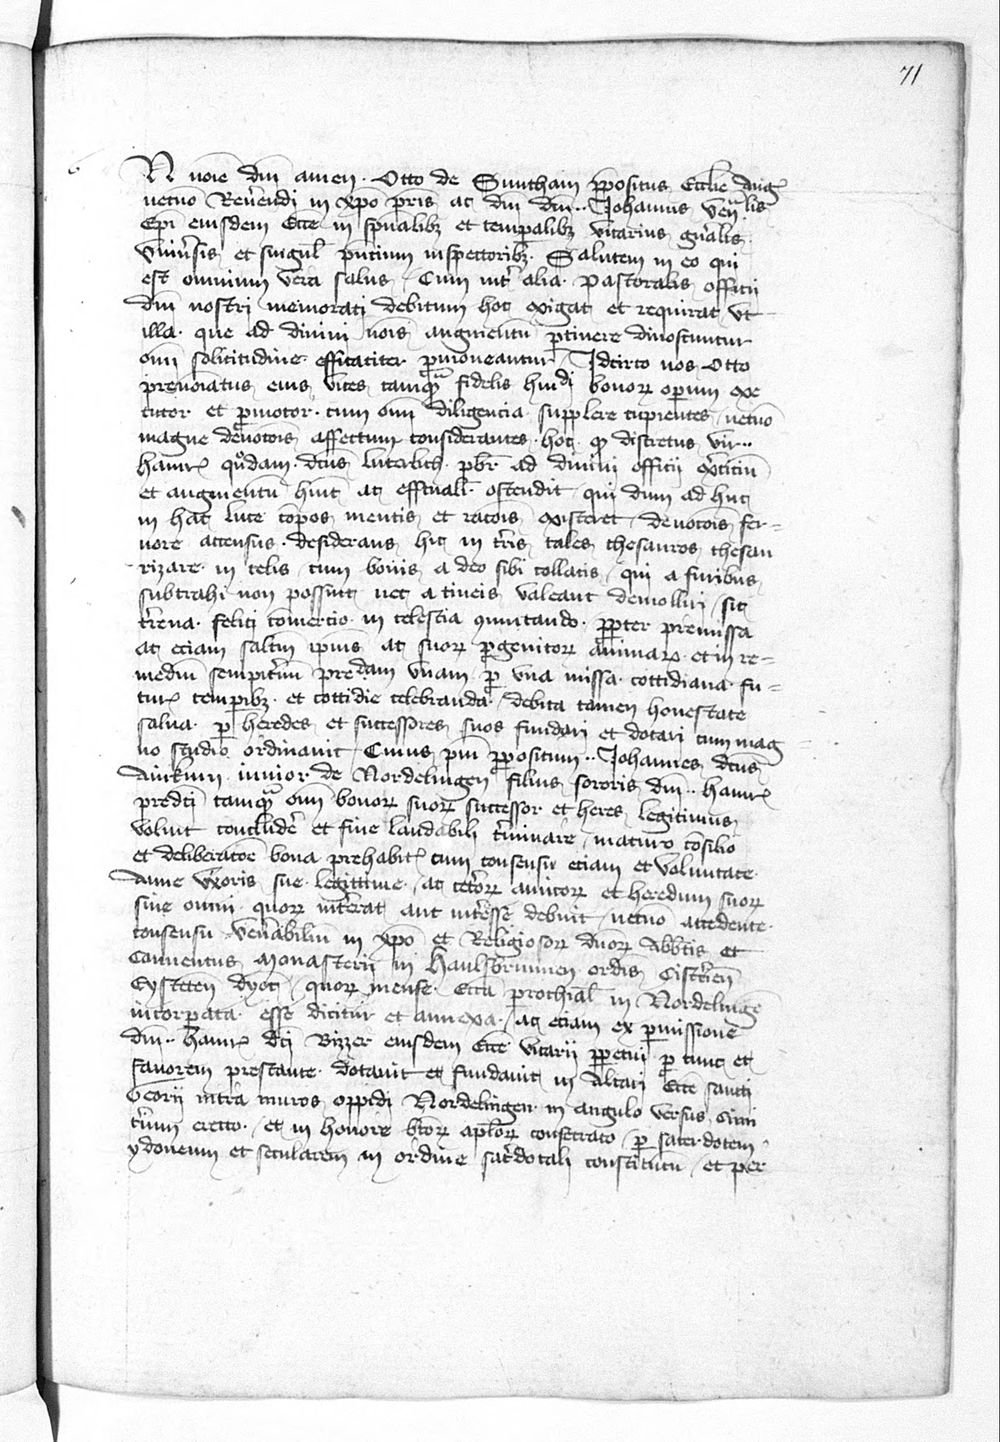 71
N noīe dnī amen · Otto de Sunthain p̄positus Ecclie Aug᷒
necnō Reūendi in xpō pr̄is ac dnī dnī ·· Johannis ven̄lis
Epī eiusdem Ecce in spūalibꝫ et temp̲alibꝫ vicarius gn̄alis
Vniūsis et singul̄ pn̄cium inspectoribꝫ · Salutem in eo qui
est omnium vera salus / Cum int̄ alia · pastoralis officii
dnī nostri memorati debitum hoc exigat et requirat vt
illa · que ad diuini nōis augmentū p̲tinere dinoscuntur
omī solicitudine · efficaciter p̲moueantur / Idcirco nos Otto
prenōiatus eius vices tamq̄ fidelis hui᷒di bonoꝝ operum exe
cutor et p̲motor · cum omī diligencia supplere cupientes / necnō
magne deuotōis affectum considerantes · hoc ꝙ discretus vir ··
Hainr᷒ qͦndam · dc̄us luterlich · pbr̄ ad diuini officii ex̄citiū
et augmentū huīt ac effc̄uali᷒ ostendit / qui dum ad huc
in hac luce cōpos mentis et racōis existeret / deuotōis fer=
uore accensus · desiderans hic in tr̄is tales thesauros thesau
rizare · in celis / cum bonis a deo sibi collatis / qui a furibus
subtrahi non possint nec a tineis valeant demolliri / sic
tr̄rena · felici cōmercio · in celestia ꝯmutando · p̲pter premissa
ac eciam saltim ipīus ac suoꝝ p̲genitoꝝ animaꝝ · et in re=
mediū sempit̄nū predc̄am vnam p̲ vna missa · cottidiana · fu=
tur᷒ temp̲ibꝫ · et cottidie celebranda · debita tamen honestate
salua · p̲ heredes et successores suos fundari et dotari cum mag
no studio ordinauit / Cuius piū p̲positum ·· Johannes dc̄us
Ainkurn iunior de Nordelingen filius sororis dnī ·· Hainr᷒
predc̄i tamq̄ omī bonoꝝ suoꝝ successor et heres legitimus
voluit concludē et fine laudabili t̄minare / maturo cōsilio
et deliberacōe bona prehabit᷒ cum consensu eciam et voluntate
Anne vxoris sue · legittime · ac cet̄oꝝ amicoꝝ et heredum suoꝝ
siue omni · quoꝝ int̄erat aut int̄esse debuit / necno accedente
consensu veūabiliū in xpō et Religiosoꝝ dnōꝝ Abbt̄is et
Conuentus Monasterii in Haulsbrunnen ordīs Cistercīen̄
Eysteten̄ dyoc / quoꝝ mense · Ecca p̲rochial᷒ in Nordelingē
incorp̲ata · esse dicitur et annexa · / ac eciam ex p̲missione
dnī ·· Hainr᷒ dc̄i Bizzer eiusdem Ecce vicarii p̲petui p̲ tunc et
fauorem prestante · dotauit et fundauit in Altari Ecce sancti
Georii intra muros oppidi Nordelingen in angulo versus Cimi
t̄ium erecto · / et in honore btōꝝ apl̄oꝝ consecrato / p̲ sacerdotem
ydoneum et secularem in ordine sac̄dotali constitutū / et per